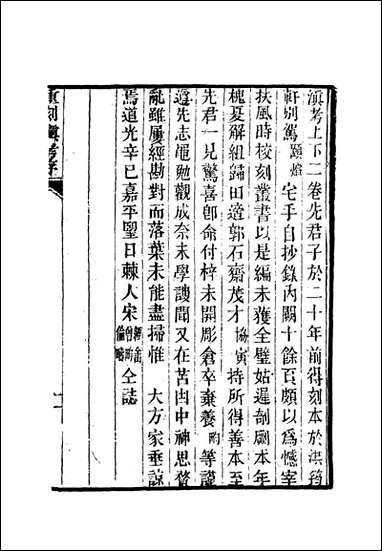 滇考上下二卷先君子於二十年前得刻本於洪筠
軒別駕頤煊宅手自抄錄內闕十餘頁頗以為憾宰
扶風時校刻叢書以是編未獲全璧姑遲剞劂本年
槐夏解組歸田適郭石齋茂才協寅持所得善本至
先君一見驚喜卽命付梓未開彫倉卒棄養 等謹
遵先志黽勉觀成奈未學謏聞又在苫凷中神思瞀
亂雖屢經勘對而落葉未能盡掃惟 大方家垂諒
焉道光辛巳嘉平望日棘人宋 仝誌
重刻滇考序